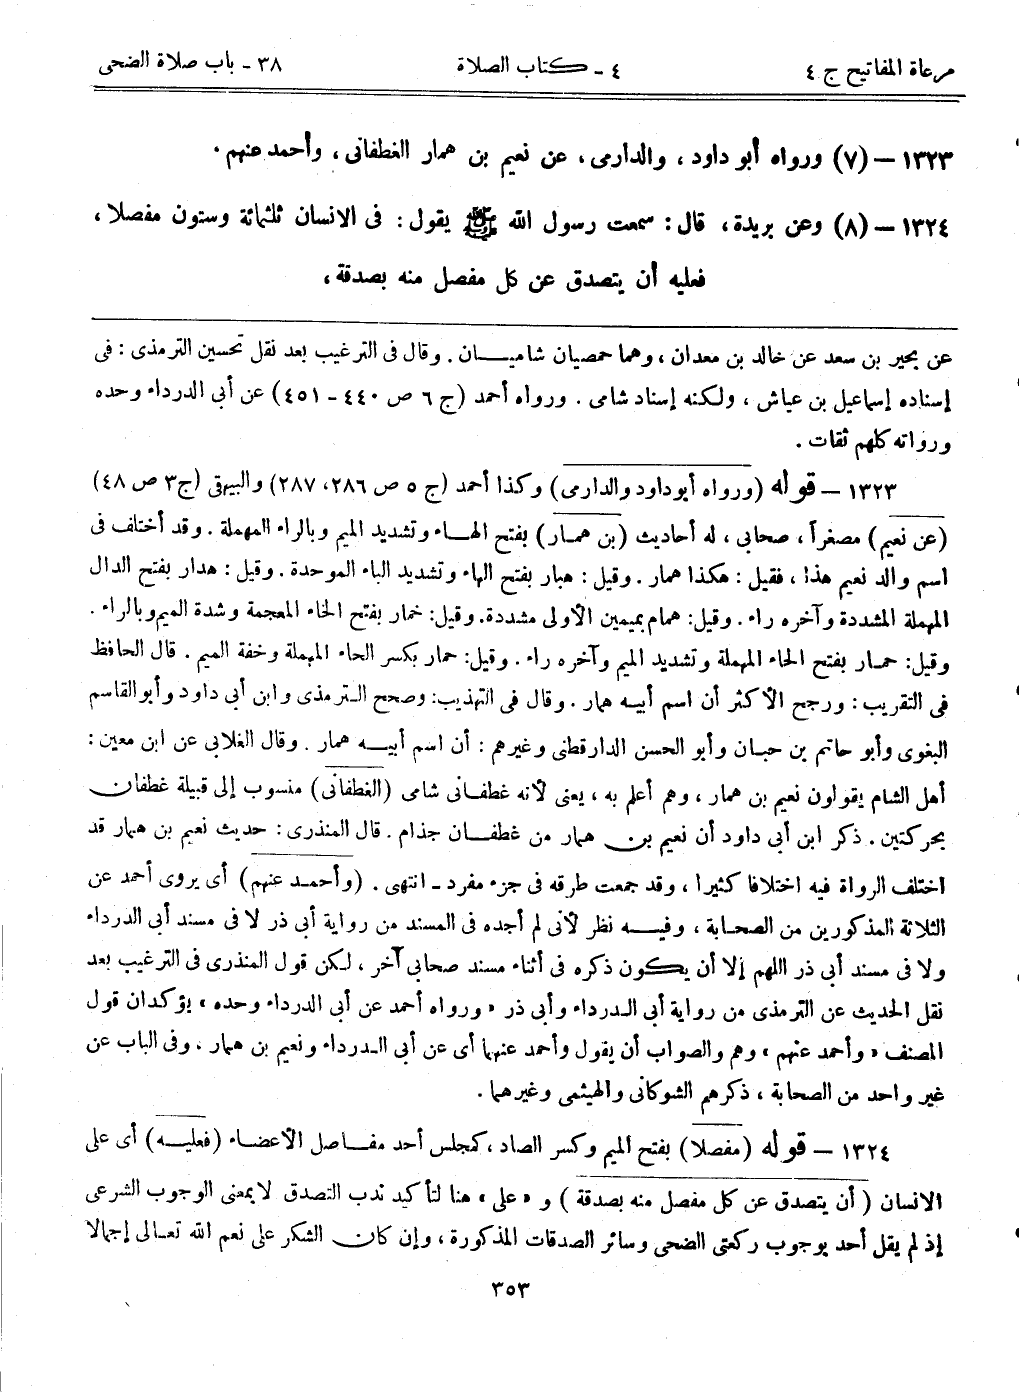 مرعاة المفاتيح ج ٤ ٤ - كتاب الصلاة ٣٨ - باب صلاة الضحى
١٣٢٣ – (٧) ورواه أبو داود، والدارمى، عن نعيم بن همار الغطفانى، وأحمد عنهم.
١٣٢٤ – (٨) وعن بريدة، قال: سمعت رسول الله ﷺ يقول: فى الانسان ثلثمائة وستون مفصلا،
فعليه أن يتصدق عن كل مفصل منه بصدقة،
عن بحير بن سعد عن خالد بن معدان، وهما حمصيان شاميان. وقال فى الترغيب بعد نقل تحسين الترمذى: فى
إسناده إسماعيل بن عياش، ولكنه إسناد شامى. ورواه أحمد (ج ٦ ص ٤٤٠ - ٤٥١) عن أبى الدرداء وحده
ورواته كلهم ثقات.
١٣٢٣ – قوله (ورواه أبو داود والدارمى) وكذا أحمد (ج ٥ ص ٢٨٦، ٢٨٧) والبيهقى (ج٣ ص ٤٨)
(عن نعيم) مصغراً، صحابى، له أحاديث (بن همار) بفتح الهاء وتشديد الميم وبالراء المهملة. وقد أختلف فى
اسم والد نعيم هذا، فقيل: هكذا همار. وقيل: هبار بفتح الهاء وتشديد الباء الموحدة. وقيل: هدار بفتح الدال
المهملة المشددة وآخره راء. وقيل: همام بميمين الأولى مشددة. وقيل: خمار بفتح الخاء المعجمة وشدة الميم وبالراء.
وقيل: حمار بفتح الحاء المهملة وتشديد الميم وآخره راء. وقيل: حمار بكسر الحاء المهملة وخفة الميم. قال الحافظ
فى التقريب: ورجح الأكثر أن اسم أبيه همار. وقال فى التهذيب: وصحح الترمذى وابن أبى داود وأبو القاسم
البغوى وأبو حاتم بن حبان وأبو الحسن الدارقطنى وغيرهم: أن اسم أبيه همار. وقال الغلابى عن ابن معين:
أهل الشام يقولون نعيم بن همار، وهم أعلم به، يعنى لأنه غطفانى شامى (الغطفانى) منسوب إلى قبيلة غطفان
بحركتين. ذكر ابن أبى داود أن نعيم بن همار من غطفان جذام. قال المنذرى: حديث نعيم بن همار قد
اختلف الرواة فيه اختلافا كثيرا، وقد جمعت طرقه فى جزء مفرد - انتهى. (وأحمد عنهم) أى يروى أحمد عن
الثلاثة المذكورين من الصحابة، وفيه نظر لأنى لم أجده فى المسند من رواية أبى ذر لا فى مسند أبى الدرداء
ولا فى مسند أبى ذر االلهم إلا أن يكون ذكره فى أثناء مسند صحابى آخر، لكن قول المنذرى فى الترغيب بعد
نقل الحديث عن الترمذى من رواية أبى الدرداء وأبى ذر «ورواه أحمد عن أبى الدرداء وحده» يؤكدان قول
المصنف «وأحمد عنهم» وهم والصواب أن يقول وأحمد عنهما أى عن أبى الدرداء ونعيم بن همار، وفى الباب عن
غير واحد من الصحابة، ذكرهم الشوكانى والهيثمى وغيرهما.
١٣٢٤ – قوله (مفصلا) بفتح الميم وكسر الصاد، كمجلس أحد مفاصل الأعضاء (فعليه) أى على
الانسان (أن يتصدق عن كل مفصل منه بصدقة) و «على» هنا لتأكيد ندب التصدق لا بمعنى الوجوب الشرعى
إذ لم يقل أحد بوجوب ركعتى الضحى وسائر الصدقات المذكورة، وإن كان الشكر على نعم الله تعالى إجمالا
٣٥٣